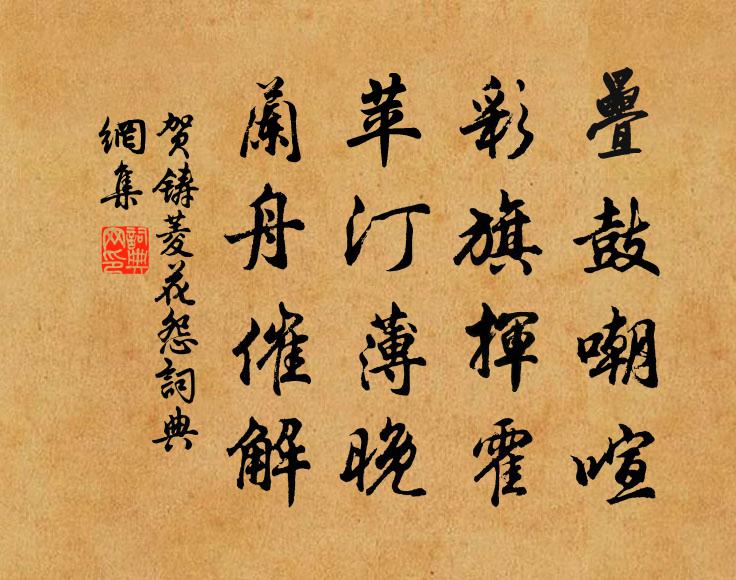 疊鼓嘲喧
彩旗揮霍
苹汀薄晚
蘭舟催解
贺铸菱花怨詞典
網集
詞典網印